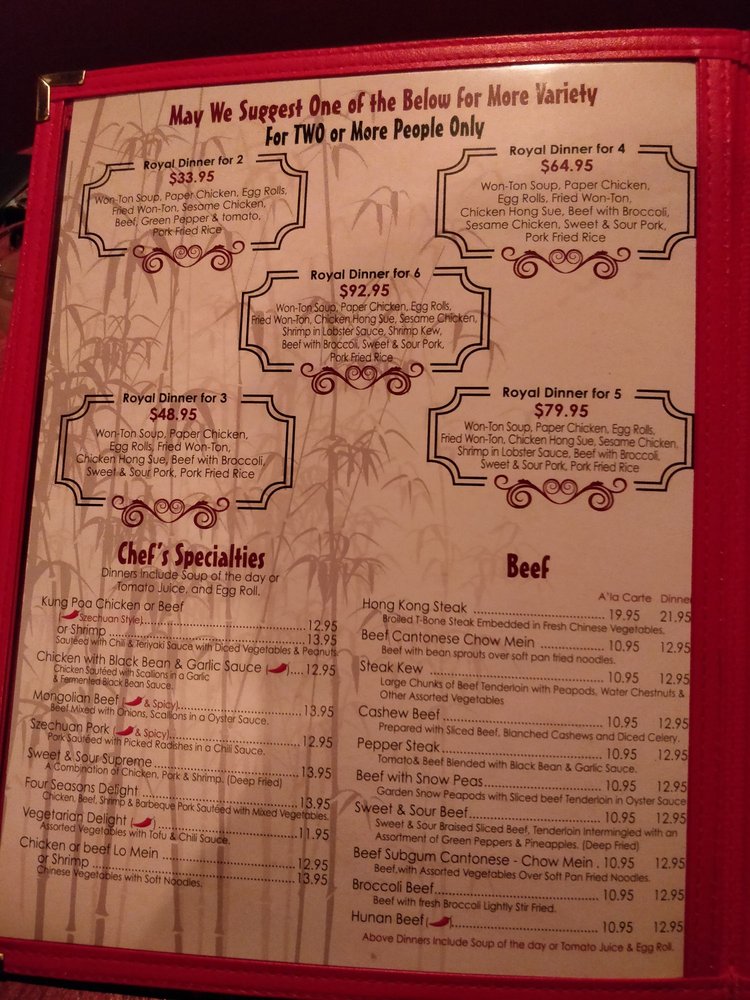 May We Suggest One of the Below For More Variety
For TWO or More People Only
Royal Dinner for 2
$33.95
Won-Ton Soup, Paper Chicken, Egg Rolls,
Fried Won-Ton, Sesame Chicken,
Beef, Green Pepper & tomato,
Pork Fried Rice
Royal Dinner for 4
$64.95
Won-Ton Soup, Paper Chicken,
Egg Rolls, Fried Won-Ton,
Chicken Hong Sue, Beef with Broccoli,
Sesame Chicken, Sweet & Sour Pork,
Pork Fried Rice
Royal Dinner for 6
$92.95
Won-Ton Soup, Paper Chicken, Egg Rolls,
Fried Won-Ton, Chicken Hong Sue, Sesame Chicken,
Shrimp in Lobster Sauce, Shrimp Kew,
Beef with Broccoli, Sweet & Sour Pork,
Pork Fried Rice
Royal Dinner for 3
$48.95
Won-Ton Soup, Paper Chicken,
Egg Rolls, Fried Won-Ton,
Chicken Hong Sue, Beef with Broccoli,
Sweet & Sour Pork, Pork Fried Rice
Royal Dinner for 5
$79.95
Won-Ton Soup, Paper Chicken, Egg Rolls,
Fried Won-Ton, Chicken Hong Sue, Sesame Chicken,
Shrimp in Lobster Sauce, Beef with Broccoli,
Sweet & Sour Pork, Pork Fried Rice
Chef's Specialties
Dinners include Soup of the day or
Tomato Juice, and Egg Roll.
Kung Paa Chicken or Beef
( Szechuan Style) 12.95
or Shrimp 13.95
Sautéed with Chili & Teriyaki Sauce with Diced Vegetables & Peanuts
Chicken with Black Bean & Garlic Sauce ( ) 12.95
Chicken Sautéed with Scallions in a Garlic
& Fermented Black Bean Sauce.
Mongolian Beef ( & Spicy) 13.95
Beef Mixed with Onions, Scallions in a Oyster Sauce.
Szechuan Pork ( & Spicy) 12.95
Pork Sautéed with Picked Radishes in a Chili Sauce.
Sweet & Sour Supreme 13.95
A Combination of Chicken, Pork & Shrimp. (Deep Fried)
Four Seasons Delight 13.95
Chicken, Beef, Shrimp & Barbeque Pork Sautéed with Mixed Vegetables.
Vegetarian Delight ( ) 11.95
Assorted Vegetables with Tofu & Chili Sauce.
Chicken or beef Lo Mein 12.95
or Shrimp 13.95
Chinese Vegetables with Soft Noodles.
Beef
A'la Carte Dinner
Hong Kong Steak 19.95 21.95
Broiled T-Bone Steak Embedded in Fresh Chinese Vegetables.
Beef Cantonese Chow Mein 10.95 12.95
Beef with bean sprouts over soft pan fried noodles.
Steak Kew 10.95 12.95
Large Chunks of Beef Tenderloin with Peapods, Water Chestnuts &
Other Assorted Vegetables
Cashew Beef 10.95 12.95
Prepared with Sliced Beef, Blanched Cashews and Diced Celery.
Pepper Steak 10.95 12.95
Tomato & Beef Blended with Black Bean & Garlic Sauce.
Beef with Snow Peas 10.95 12.95
Garden Snow Peapods with Sliced beef Tenderloin in Oyster Sauce
Sweet & Sour Beef 10.95 12.95
Sweet & Sour Braised Sliced Beef, Tenderloin Intermingled with an
Assortment of Green Peppers & Pineapples. (Deep Fried)
Beef Subgum Cantonese - Chow Mein . 10.95 12.95
Beef, with Assorted Vegetables Over Soft Pan Fried Noodles.
Broccoli Beef 10.95 12.95
Beef with fresh Broccoli Lightly Stir Fried.
Hunan Beef ( ) 10.95 12.95
Above Dinners Include Soup of the day or Tomato Juice & Egg Roll.